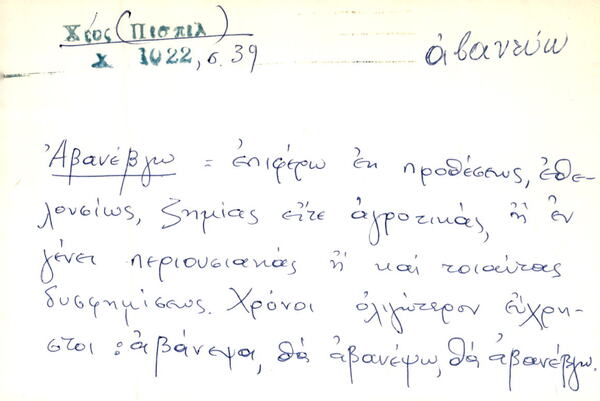 Χίος (Πισπιλ
χ 1022, σ. 39
ἀβανεύω
Ἀβανέβγω = ἐπιφέρω ἐκ προθέσεως, ἐθε-
λουσίως, ζημίας εἴτε ἀγροτικάς, ἢ ἐν
γένει περιουσιακάς ἢ καὶ τοιαύτας
δυσφημίσεως. Χρόνοι ὀλιγώτερον εὔχρη-
στοι: ἀβάνεψα, θὰ ἀβανέψω, θὰ ἀβανέβγω.